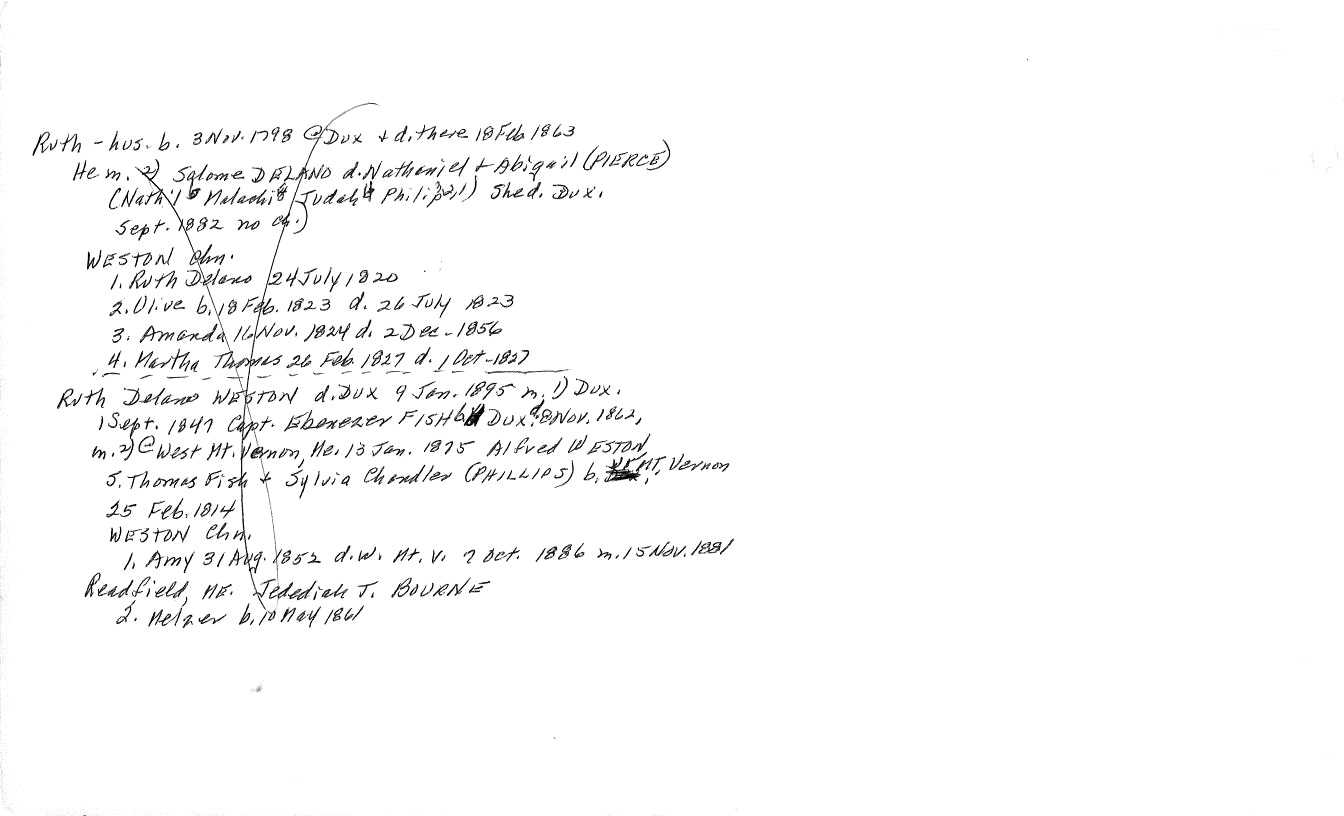 Ruth - hus. b. 3 Nov. 1798 @ Dux + d. there 18 Feb 1863
He m. 2) Salome DELANO d. Nathaniel + Abigail (PIERCE)
(Nath'l Malachi Judah Philip) She d. Dux.
Sept. 1882 no ch.)
WESTON Chn.
1. Ruth Delano 24 July 1820
2. Olive b. 18 Feb. 1823 d. 26 July 1823
3. Amanda 16 Nov. 1824 d. 2 Dec - 1856
4. Martha Thomas 26 Feb. 1827 d. 1 Oct - 1827
Ruth Delano WESTON d. Dux 9 Jan. 1895 m. 1) Dux.
1 Sept. 1847 Capt. Ebenezer FISH b Dux. d. 8 Nov. 1862,
m. 2) @ West Mt. Vernon, Me. 13 Jan. 1875 Alfred WESTON,
S. Thomas Fish + Sylvia Chandler (PHILLIPS) b. MT. Vernon
25 Feb. 1814
WESTON Chn.
1. Amy 31 Aug. 1852 d. W. Mt. V. 7 Oct. 1886 m. 15 Nov. 1881
Readfield, ME. Jedediah J. BOURNE
2. Melzer b. 10 May 1861